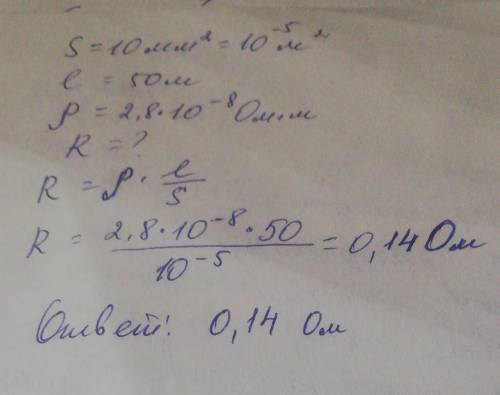 S = 10 мм² = 10⁻⁵ м²
l = 50 м
ρ = 2,8 · 10⁻⁸ Ом·м
R = ?
R = ρ · l/S
R = 2,8 · 10⁻⁸ · 50 / 10⁻⁵ = 0,14 Ом
Ответ: 0,14 Ом